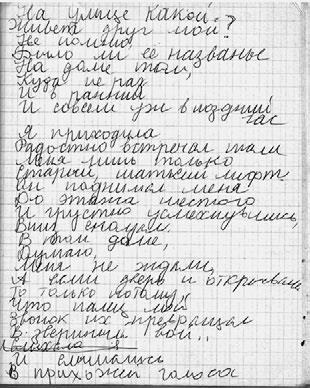 На улице какой
Живёт друг мой?
Не помню,
Было ли ее названье
На доме том,
Куда не раз
И в ранний
И совсем уж в поздний
час
Я приходила
Радостно встречал там
Меня лишь только
Старый, шаткий лифт.
Он поднимал меня
До этажа шестого
И грустно усмехнувшись,
Вниз
В том доме,
Думаю,
Меня не ждали,
А если дверь и открывали
То только потому,
Что палец мой
Звонок их превращал
В звериный вой..
я
И слышались
В прихожей голоса